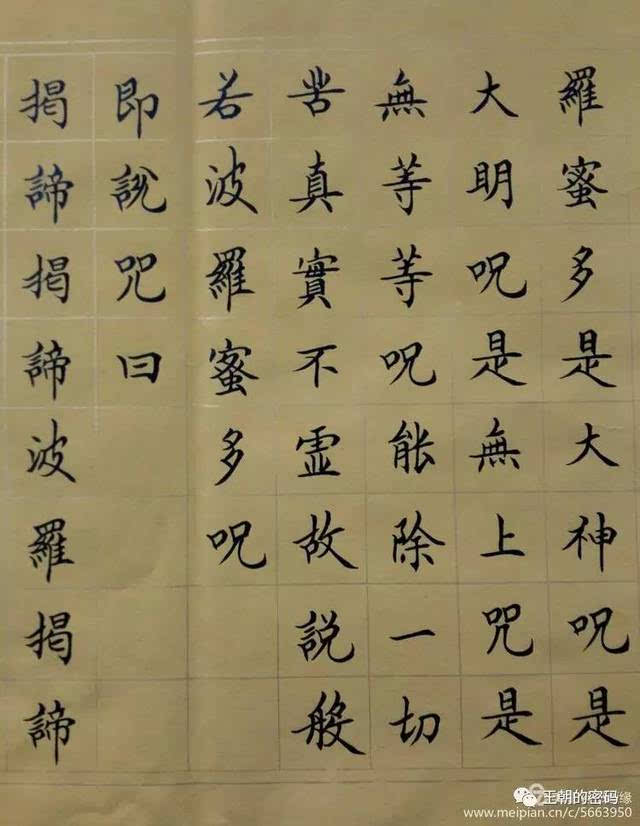 羅蜜多是大神呪是
大明呪是無上咒是
無等等呪能除一切
苦真實不虛故説般
若波羅蜜多呪
即說咒曰
揭諦揭諦波羅揭諦
王朝的密码
缘
www.meipian.cn/c/5663950